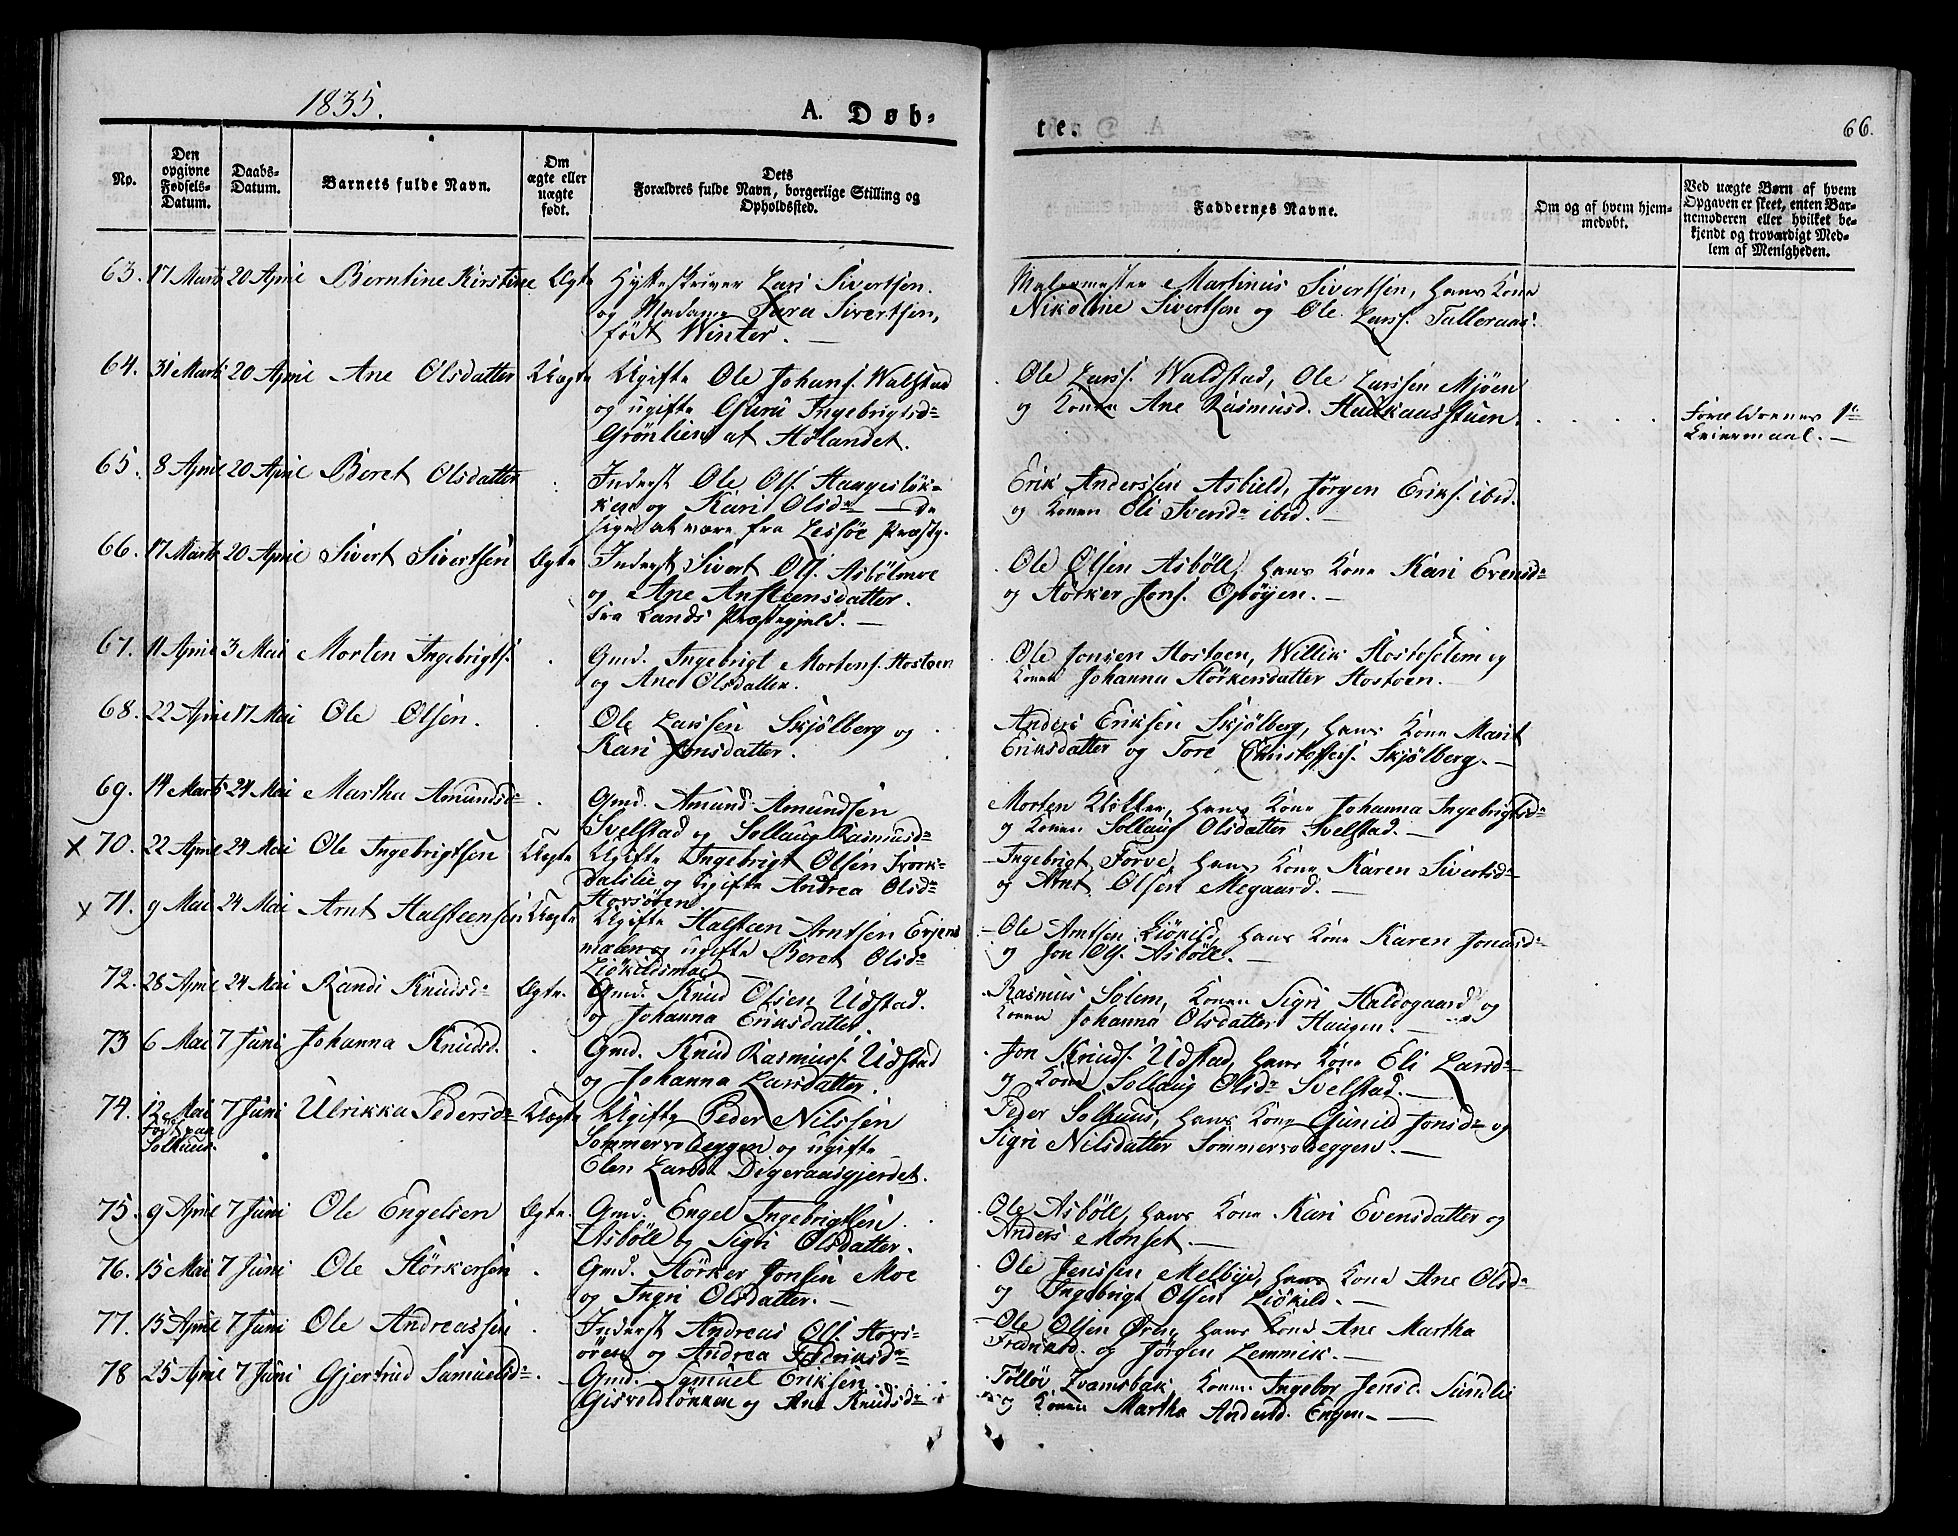 1835.
A. Døb-
te.
66.
No.
Den opgivne Fødsels-Datum.
Daabs-Datum.
Barnets fulde Navn.
Om ægte eller uægte født.
Dets Forældres fulde Navn, borgerlige Stilling og Opholdssted.
Faddernes Navne.
Om og af hvem hjem-medøbt.
Ved uægte Børn af hvem Opgaven er skeet, enten Bar-nemoderen eller hvilket be-kjendt og troværdigt Med-lem af Menigheden.
63. 17 Marts 20 April Berntine Kirstine Ægte Hytteskriver Lars Sivertsen.
og Madame Sara Sivertsen,
født Winter. —
Malermester Martinus Sivertsen, hans Kone
Nikoline Sivertsen og Ole Larss. Talleraas.
64. 31 Marts 20 April Ane Olsdatter Uægte Ugifte Ole Johans. Walstad
og ugifte Guru Ingebrigtsdr
Grønlien af Hølandet.
Ole Larss. Waldstad, Ole Larssen Mjøen
og Konen Ane Rasmusd. Haukaasstuen.
Forældrenes 1ste
Leiermaal. —
65. 8 April 20 April Beret Olsdatter Inderst Ole Ols. Haugesløk-
ken og Kari Olsdr — de
siges at være fra Lessøe Præstg.
Erik Anderssen Asbiel, Jørgen Eriks. ibid.
og Konen Eli Iversdr ibid. —
66. 17 Marts 20 April Sivert Sivertsen Ægte Inderst Sivert Ols. Asbølmoe
og Ane Ansteensdatter.
fra Lands Præstegjeld. —
Ole Olsen Asbøll, hans Kone Kari Evensdr
og Størker Jons. Opøyen. —
67. 11 April 3 Mai Morten Ingebrigts. Gmd. Ingebrigt Mortens. Hostoen
og Ane Olsdatter.
Ole Jonsen Hostoen, Willik Hostoselem og
Konen Johanna Størkersdatter Hostoen. —
68. 22 April 17 Mai Ole Olsen. Ole Larssen Skjølberg og
Kari Jonsdatter.
Anders Eriksen Skjølberg, hans Kone Marit
Eriksdatter og Tore Christoffers. Skjølberg. —
69. 14 Marts 24 Mai Martha Amundsdr Gmd. Amund Amundsen
Svelstad og Sollaug Rasmusdr
Morten Klitter, hans Kone Johanna Ingebrigtsdr
og Konen Sollaug Olsdatter Svelstad. —
x 70. 22 April 24 Mai Ole Ingebrigtsen Uægte Ugifte Ingebrigt Olsen Svork-
dalslie og Ugifte Andrea Olsdr
Hovsøren
Ingebrigt Forve, hans Kone Karen Sivertsdr
og Arnt Olsen Megaard. —
x 71. 9 Mai 24 Mai Arnt Halsteensen Uægte Ugifte Halsteen Arntsen Evjens
malen og ugifte Beret Olsdr
Liøkildsmoe
Ole Arntsen Liøkild, hans Kone Karen Jonasdr
og Jon Ols. Asbøll. —
72. 28 April 24 Mai Randi Knudsdr Ægte. Gmd. Knud Olsen Udstad.
og Johanna Eriksdatter
Rasmus Solem, Konen Sigri Haldogaard og
Konen Johanna Olsdatter Haugen. —
73 6 Mai 7 Juni Johanna Knudsd. Gmd. Knud Rasmuss. Udstad
og Johanna Larsdatter.
Jon Knuds. Udstad, hans Kone Eli Larsdr
og Kone Sollaug Olsdr Svelstad. —
74. 12 Mai 7 Juni Ulrikka Pedersdr Uægte Ugifte Peder Nilssen
født paa
Solhuus.
Sommervoldeggen og ugifte
Elen Larsdr Digeraasgjerdet.
Peder Solhuus, hans Kone Gunild Jonsdr og
Sigri Nilsdatter Sommervoldeggen. —
75. 9 April 7 Juni Ole Engelsen Ægte. Gmd. Engel Ingebrigtsen
Asbøll og Sigri Olsdatter.
Ole Asbøll, hans Kone Kari Evensdatter og
Anders Monset. —
76. 15 Mai 7 Juni Ole Størkersen Gmd. Størker Jonsen Moe
og Ingri Olsdatter. —
Ole Jenssen Melbye, hans Kone Ane Olsdr
og Ingebrigt Olsen Liøkild. —
77. 15 April 7 Juni Ole Andreassen Inderst Andreas Ols. Hovs-
ören og Andrea Fredriksdr
Ole Olsen Øren, hans Kone Ane Martha
Fredriksd. og Jørgen Lemmik. —
78 25 April 7 Juni Gjertrud Samuelsdr Gmd. Samuel Eriksen
Gisvoldløkken og Ane Knudsdr
Tolløv Kvamsbak, Konen Ingebor Jensd. Sundlie
og Konen Martha Andersd. Engen. —